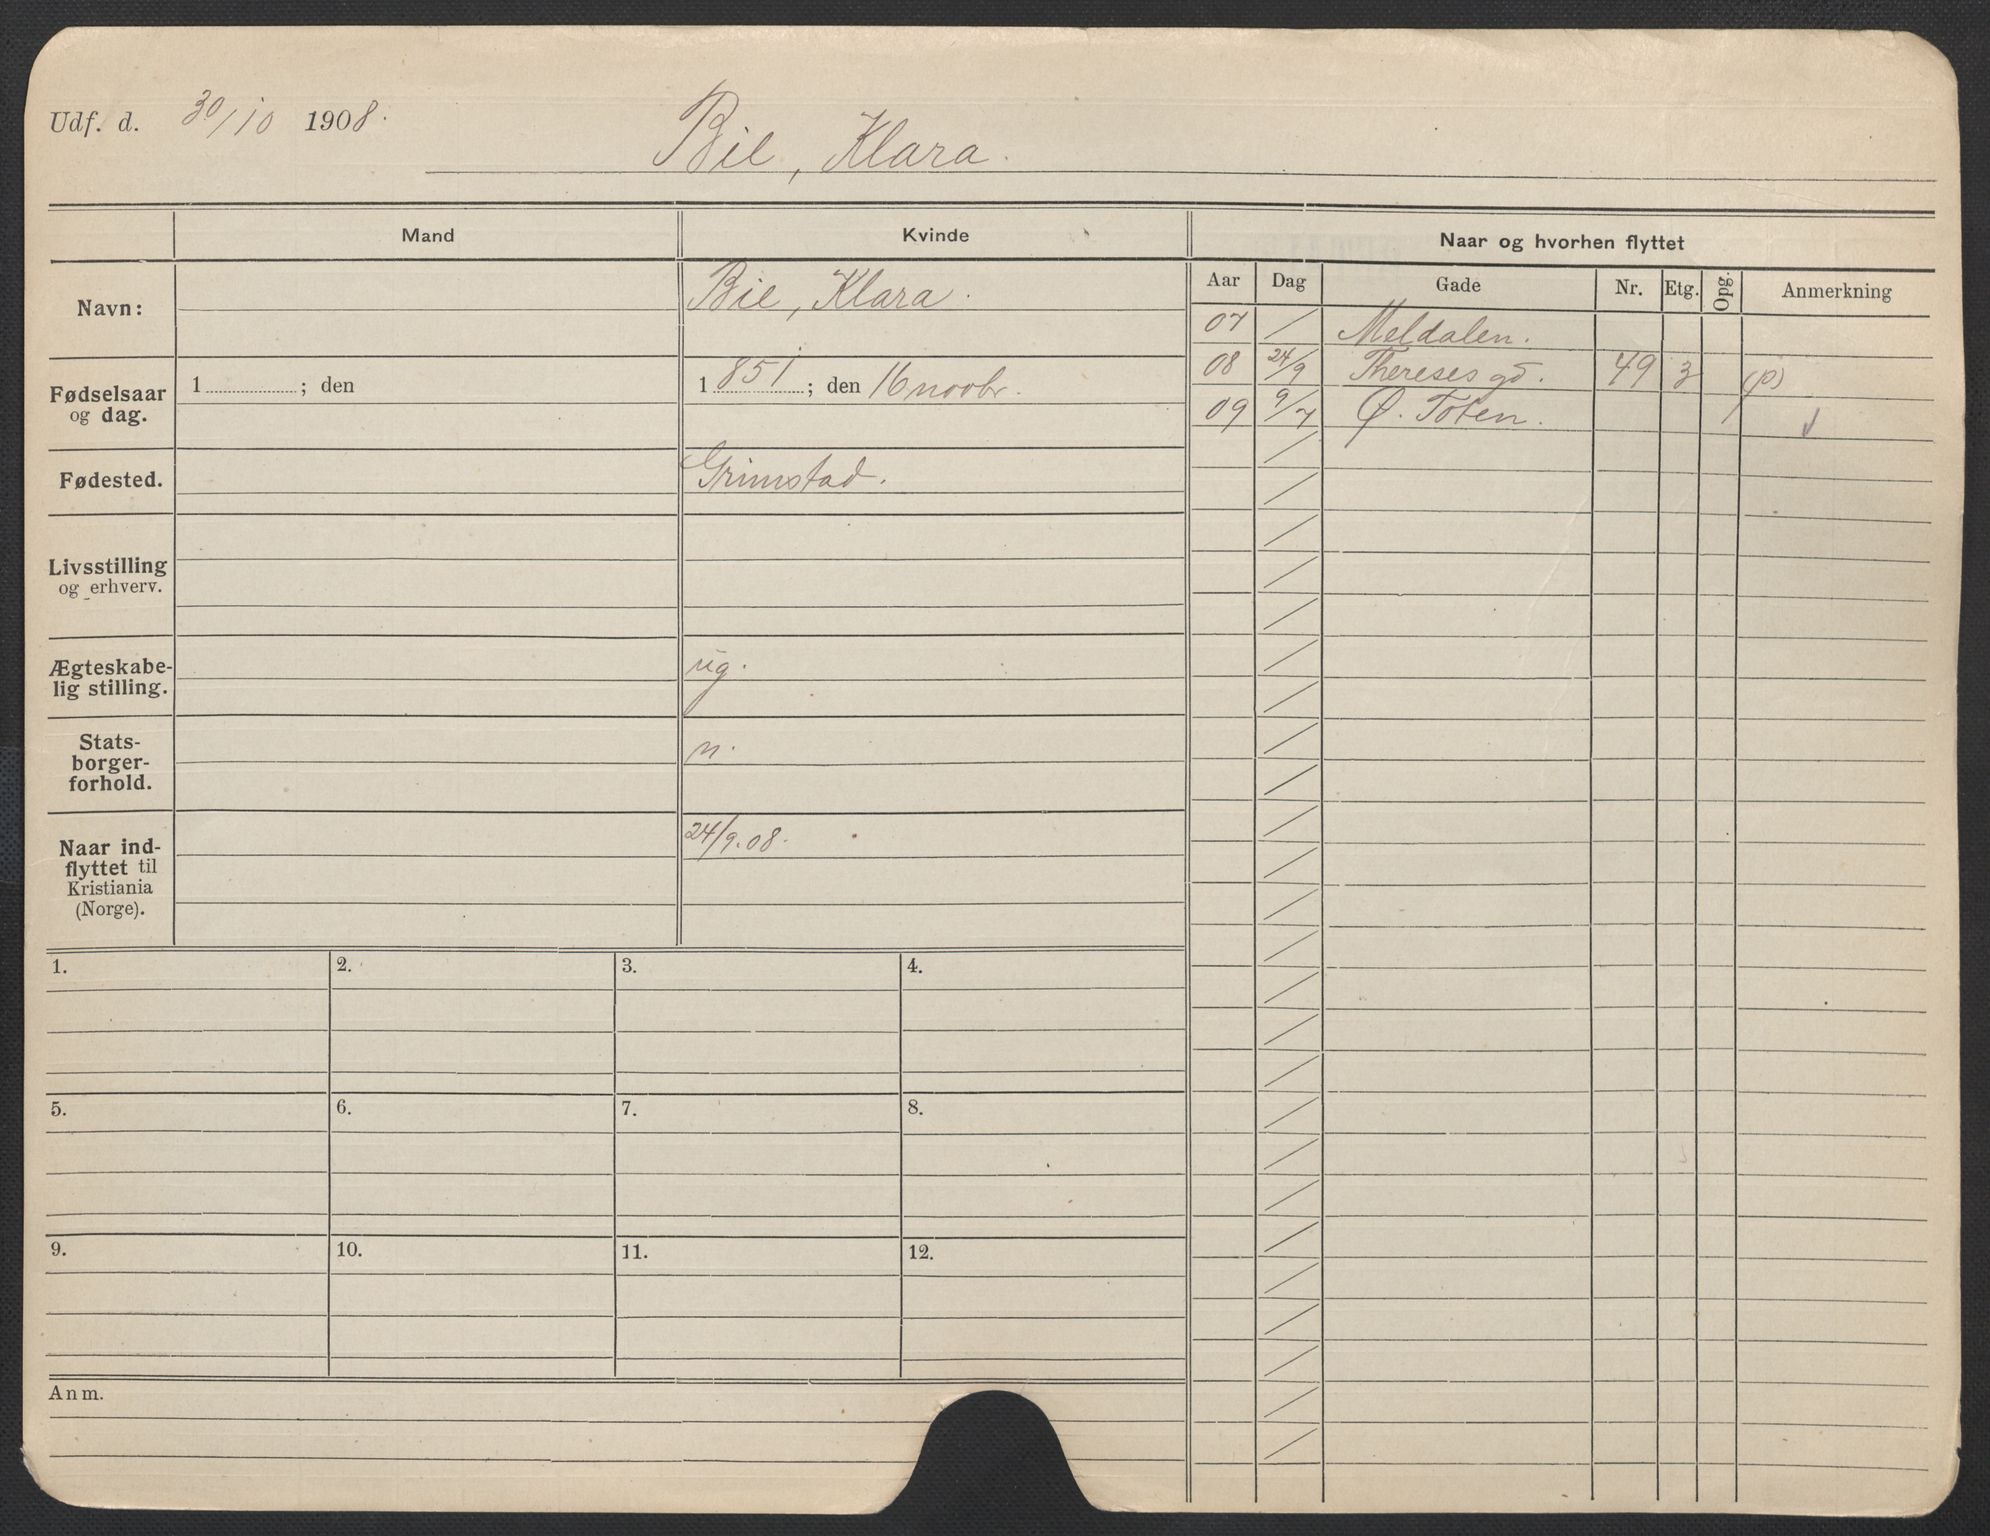 Udf. d. 30/10 1908.
Bie, Klara.
Mand Kvinde Naar og hvorhen flyttet
Aar Dag Gade Nr. Etg. Opg. Anmerkning
Navn: Bie, Klara.
Fødselsaar og dag. 1 ; den 1851 ; den 16 novbr.
Fødested. Grimstad.
Livsstilling og erhverv.
Ægteskabe-
lig stilling. ug.
Stats-
borger-
forhold. n.
Naar ind-
flyttet til
Kristiania
(Norge). 24/9.08.
07 / Meldalen.
08 24/9 Thereses gd. 49 3 (p)
09 9/7 Ø. Toten.
1. 2. 3. 4.
5. 6. 7. 8.
9. 10. 11. 12.
Anm.